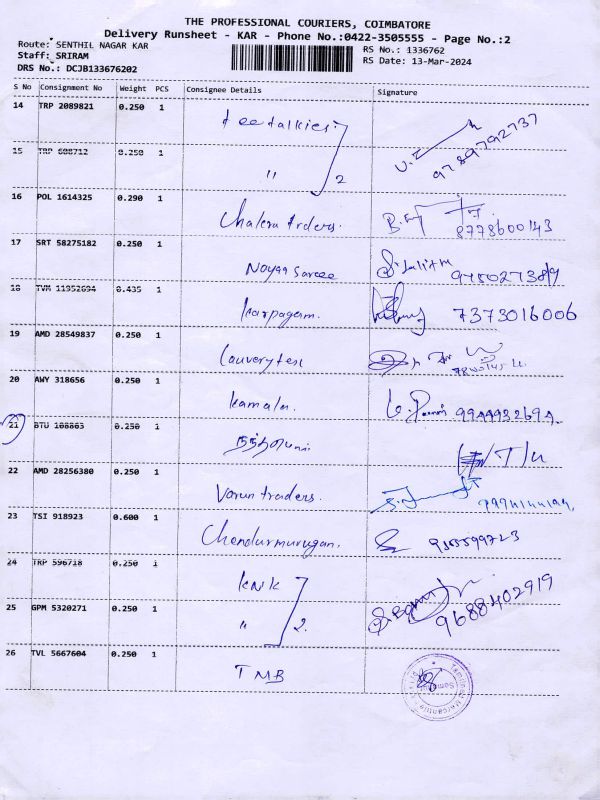 THE PROFESSIONAL COURIERS, COIMBATORE
Delivery Runsheet - KAR - Phone No.:0422-3505555 - Page No.:2
Route: SENTHIL NAGAR KAR
RS No.: 1336762
Staff: SRIRAM
RS Date: 13-Mar-2024
DRS No.: DCJB133676202
S No Consignment No Weight PCS Consignee Details Signature
14 TRP 2089821 0.250 1
9789792737
15 TRP 688712 0.250 1 " 2
16 POL 1614325 0.290 1
8778600143
17 SRT 58275182 0.250 1
Nayaa Saree
18 TVM 11952694 0.435 1
karpagam. 7373016006
19 AMD 28549837 0.250 1
20 AWY 318656 0.250 1
kamala. 9944932694
21 BTU 108863 0.250 1
22 AMD 28256380 0.250 1
Varun traders.
23 TSI 918923 0.600 1
Chendurmurugan.
24 TRP 596718 0.250 1
KNK 9688402919
25 GPM 5320271 0.250 1 " 2.
26 TVL 5667604 0.250 1
TMB